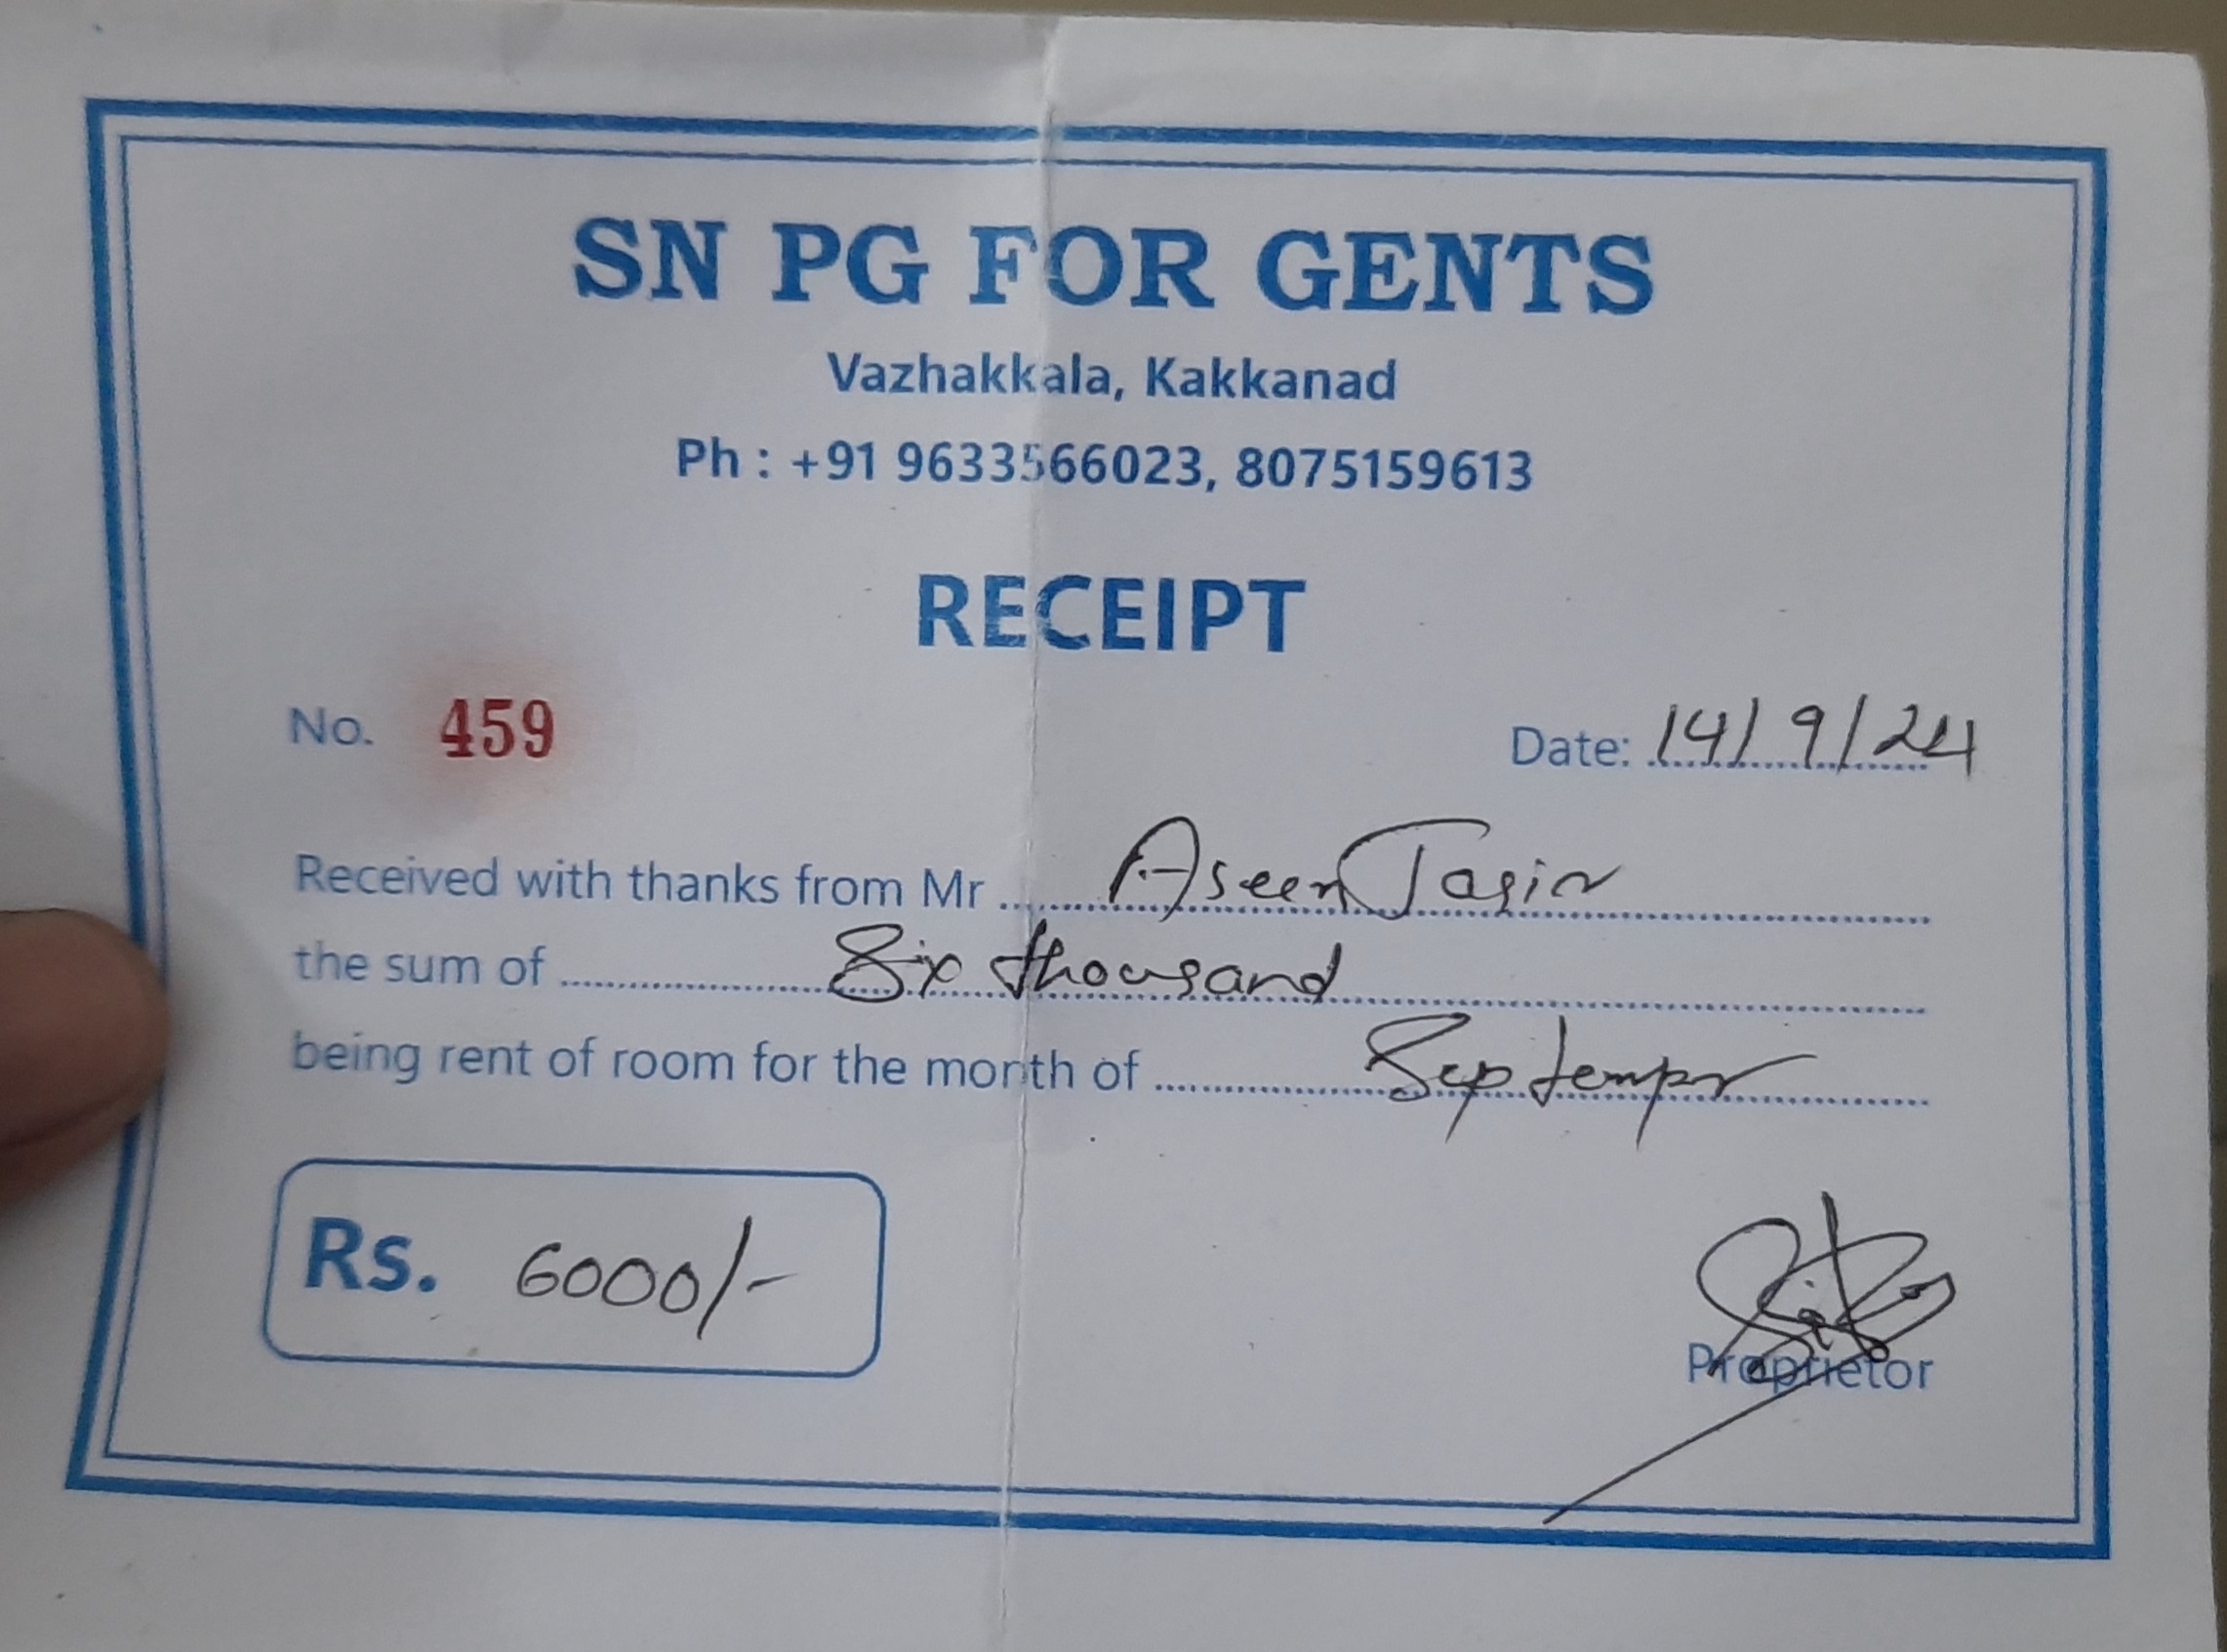 SN PG FOR GENTS
Vazhakkala, Kakkanad
Ph : +91 9633566023, 8075159613
RECEIPT
No. 459 Date: 14/9/24
Received with thanks from Mr Aseem Jasir
the sum of Six thousand
being rent of room for the month of Septempr
Rs. 6000/-
Proprietor